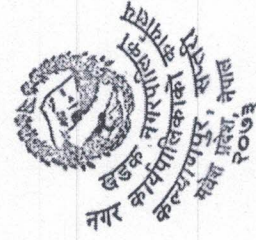 खडक नगरपालिका
नगर कार्यपालिकाको कार्यालय
कल्याणपुर, सप्तरी
मधेश प्रदेश, नेपाल
२०७३